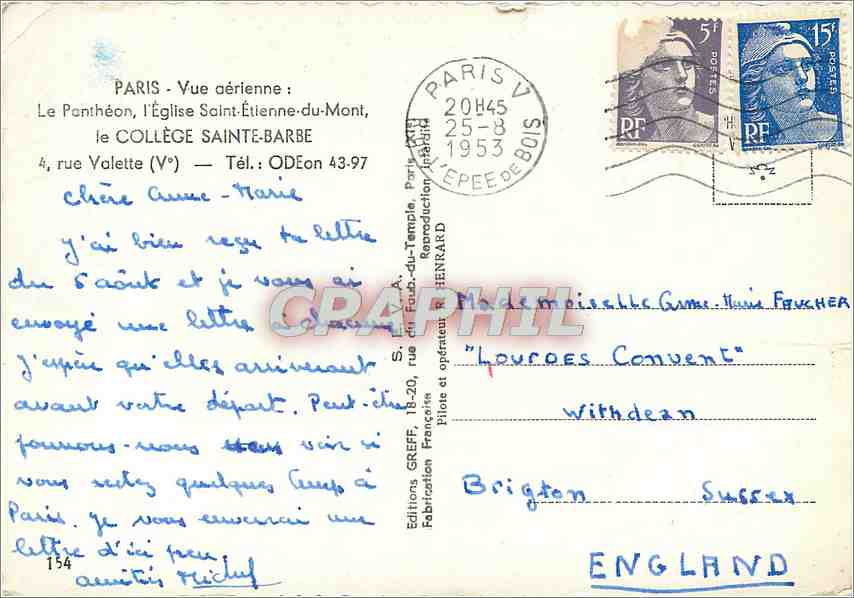 PARIS - Vue aérienne :
Le Panthéon, l'Église Saint-Étienne-du-Mont,
le COLLÈGE SAINTE-BARBE
4, rue Valette (Vº) — Tél.: ODEon 43-97
Chère Anne-Marie
J'ai bien reçu ta lettre
du 5 août et je vous ai
envoyé une lettre à chacune
J'espère qu'elles arriveront
avant votre départ. Peut-être
pourrons-nous voir si
vous restez quelques temps à
Paris. Je vous enverrai une
lettre d'ici peu
amitiés Michel
154
PARIS V
20H45
25-8
1953
R. DE L'EPEE DE BOIS
5F
POSTES
RF
15F
POSTES
RF
S. E. V. A.
Editions GREFF, 18-20, rue du Faub.-du-Temple, Paris (XIe)
Fabrication Française
Reproduction interdite
Pilote et opérateur R. HENRARD
CPAPHIL
Mademoiselle Anne-Marie FAUCHER
"LOURDES Convent"
Withdean
Brigton Sussex
ENGLAND